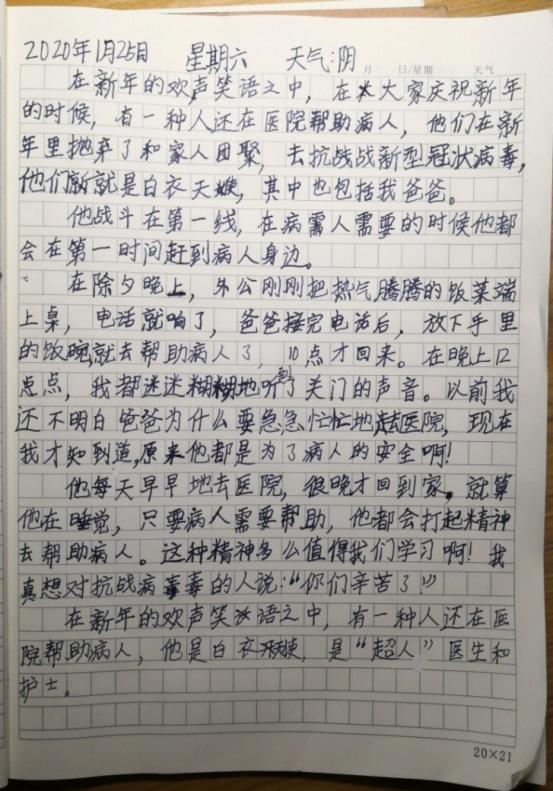 2020年1月25日 星期六 天气:阴
月 日/星期 天气
在新年的欢声笑语之中,在大家庆祝新年
的时候,有一种人还在医院帮助病人,他们在新
年里抛弃了和家人团聚,去抗战战新型冠状病毒,
他们就是白衣天使,其中也包括我爸爸。
他战斗在第一线,在病人需要的时候他都
会在第一时间赶到病人身边。
在除夕晚上,外公刚刚把热气腾腾的饭菜端
上桌,电话就响了,爸爸接完电话后,放下手里
的饭碗,就去帮助病人了,10点才回来。在晚上12
点,我都迷迷糊糊地听到了关门的声音。以前我
还不明白爸爸为什么要急急忙忙地去医院,现在
我才知到道,原来他都是为了病人的安全啊!
他每天早早地去医院,很晚才回到家。就算
他在睡觉,只要病人需要帮助,他都会打起精神
去帮助病人。这种精神多么值得我们学习啊!我
真想对抗战病毒的人说:“你们辛苦了”
在新年的欢声笑语之中,有一种人还在医
院帮助病人,他是白衣天使,是“超人”医生和
护士。
20×21